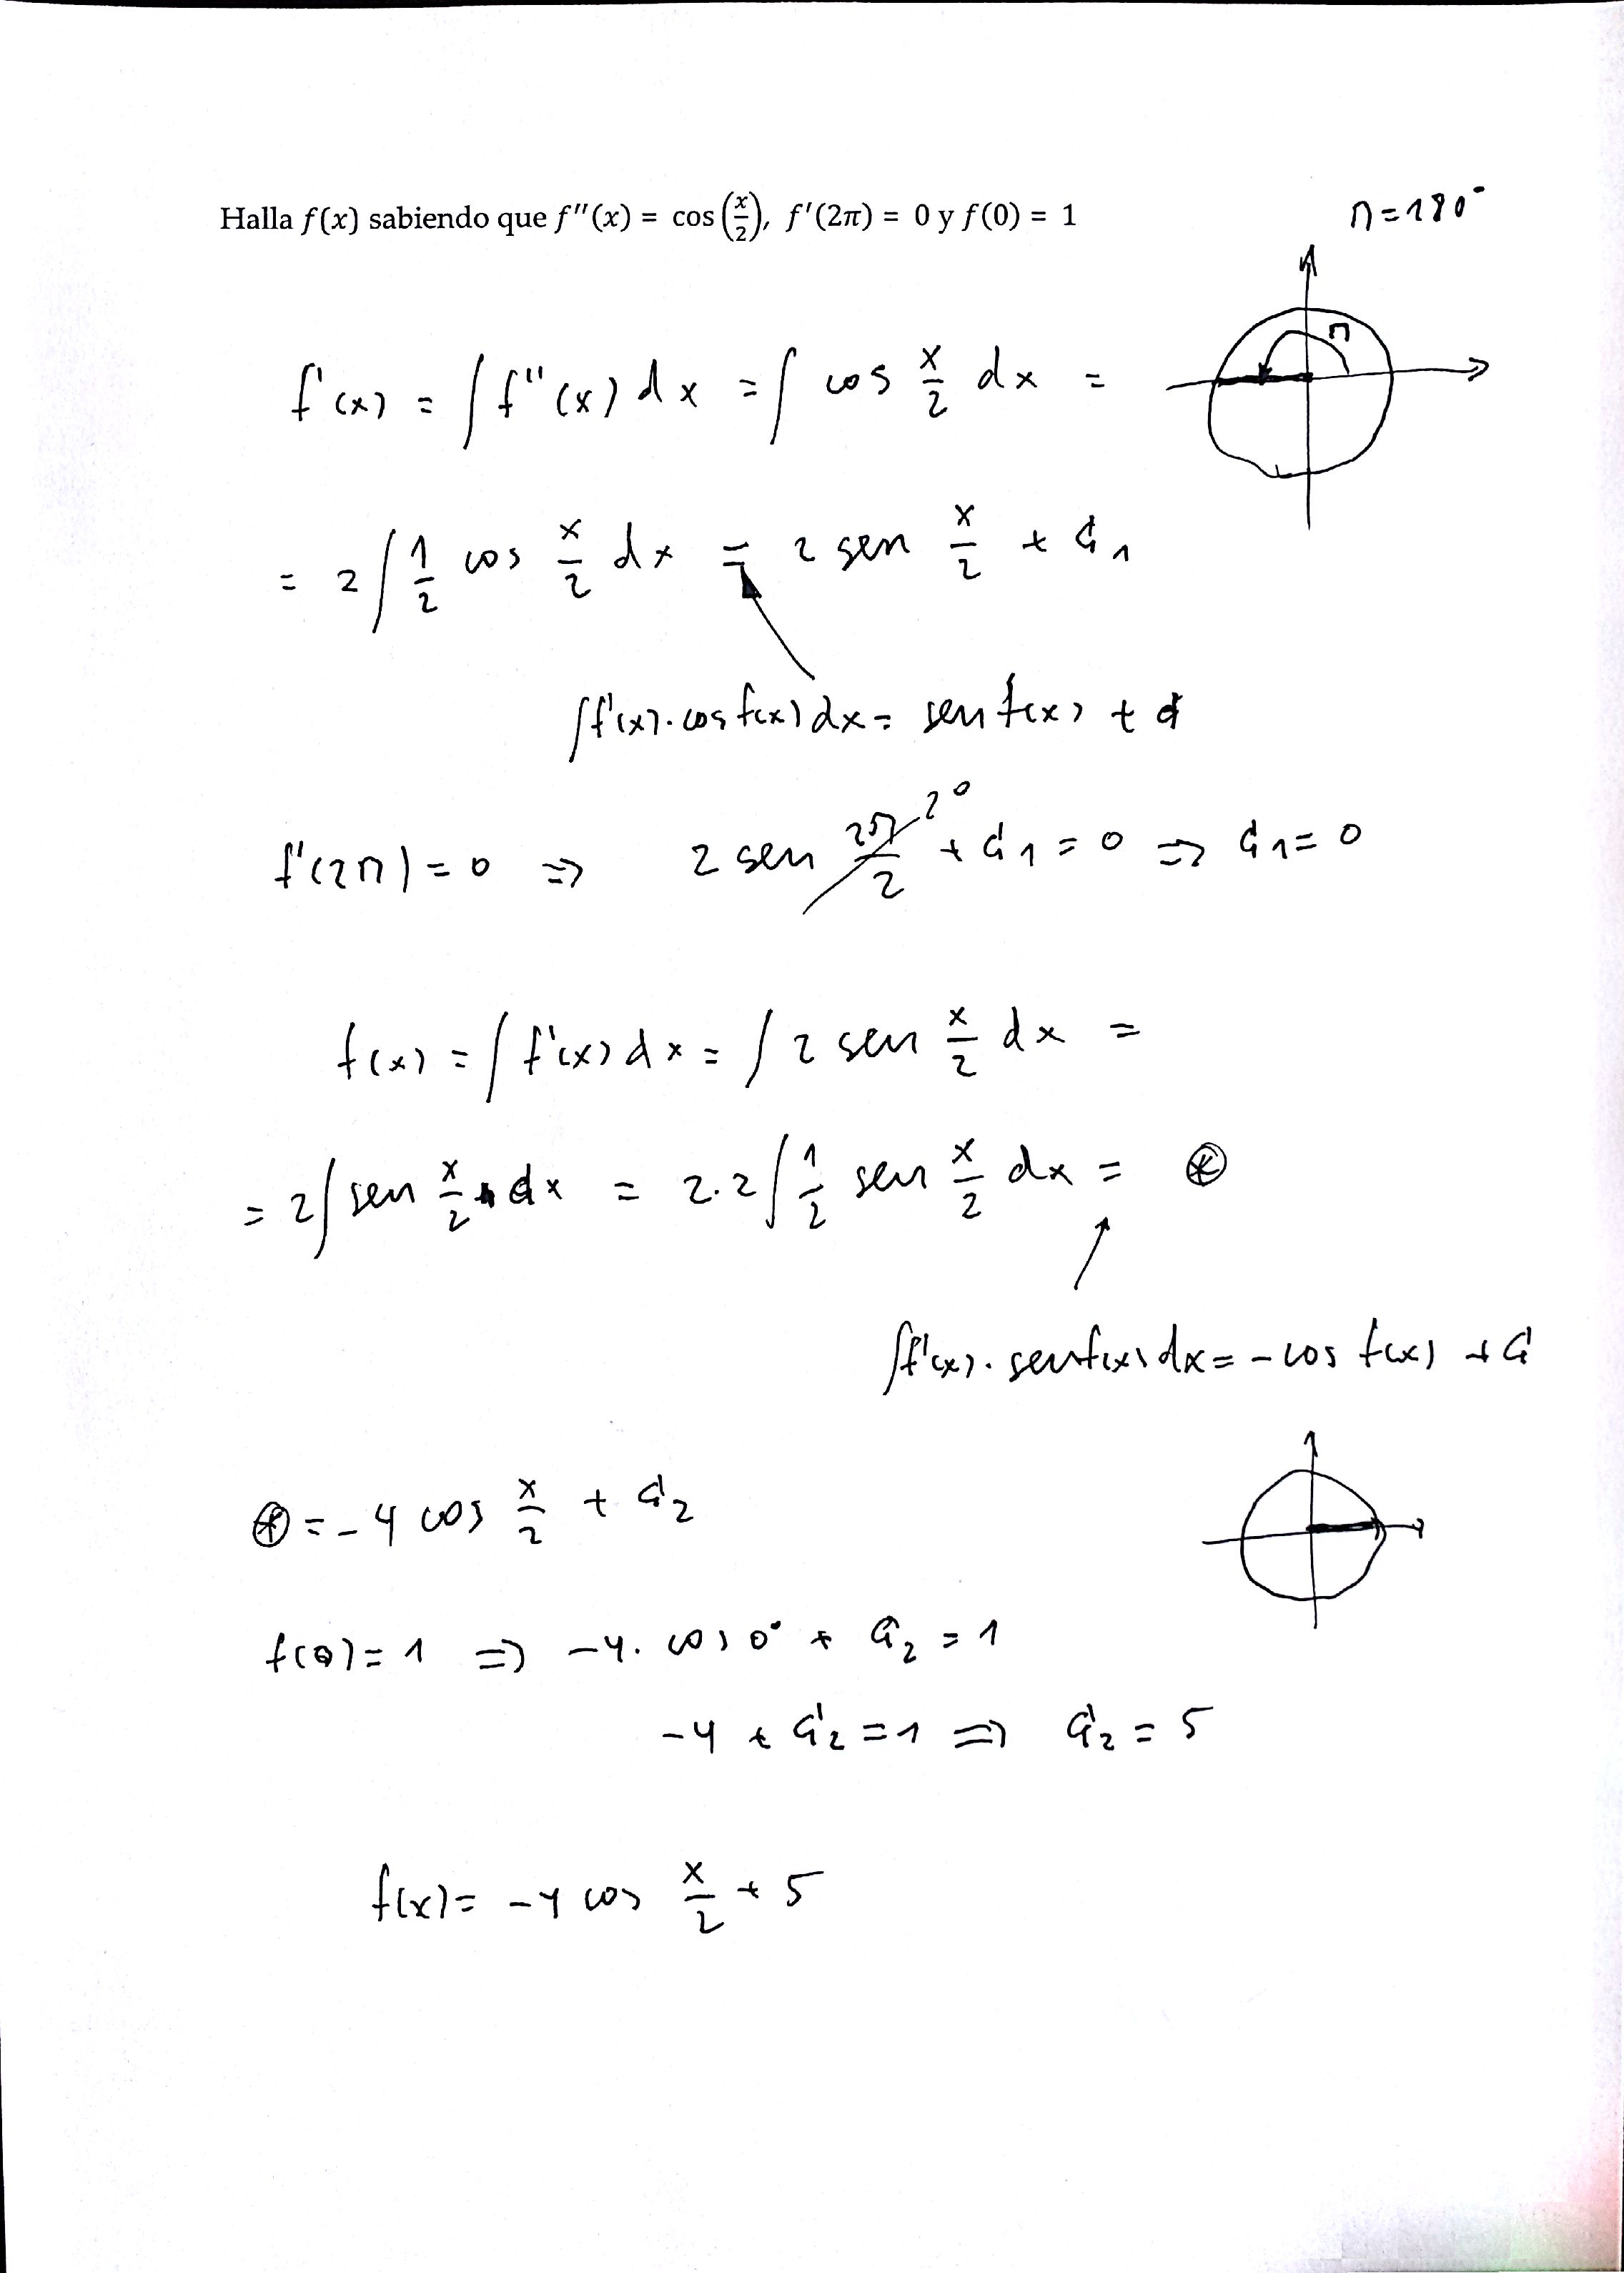 Halla f(x) sabiendo que f''(x) = cos(x/2), f'(2π) = 0 y f(0) = 1
π = 180°
π
f'(x) = ∫ f''(x) dx = ∫ cos x/2 dx =
= 2 ∫ 1/2 cos x/2 dx = 2 sen x/2 + C₁
∫ f'(x) · cos f(x) dx = sen f(x) + C
f'(2π) = 0 ⇒ 2 sen 2π/2 + C₁ = 0 ⇒ C₁ = 0
f(x) = ∫ f'(x) dx = ∫ 2 sen x/2 dx =
= 2 ∫ sen x/2 dx = 2·2 ∫ 1/2 sen x/2 dx = ⊛
∫ f'(x) · sen f(x) dx = - cos f(x) + C
⊛ = - 4 cos x/2 + C₂
f(0) = 1 ⇒ -4 · cos 0° + C₂ = 1
-4 + C₂ = 1 ⇒ C₂ = 5
f(x) = -4 cos x/2 + 5